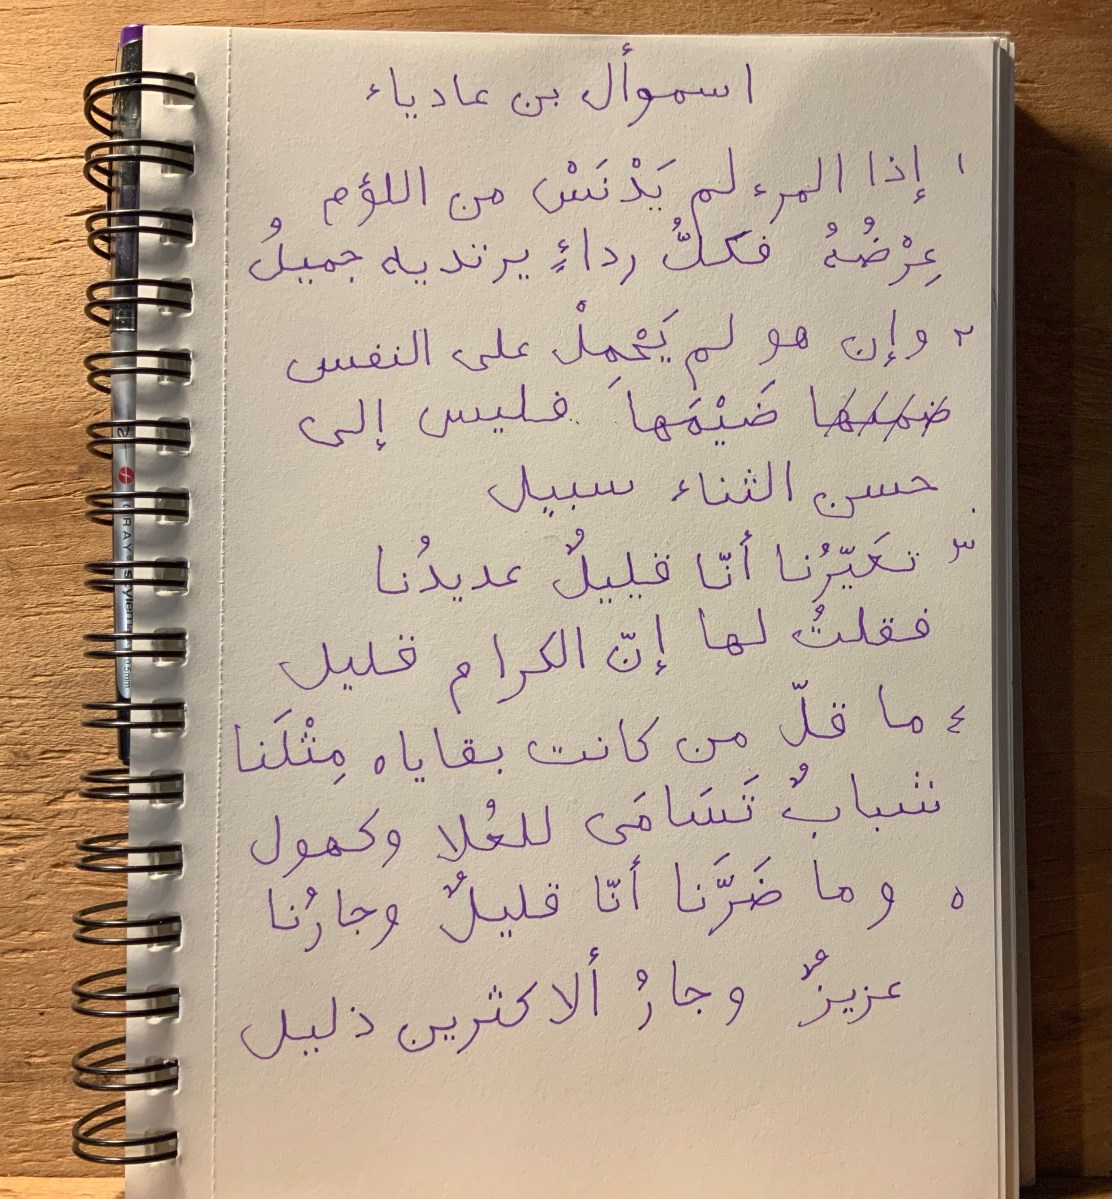 اسموأل بن عادياء
١ إذا المرء لم يَدْنَسْ من اللؤم
عِرْضُهُ فكلُّ رداءٍ يرتديه جميلُ
٢ وإن هو لم يَحْمِلْ على النفس
ضَيْمَها فليس إلى
حسن الثناء سبيل
٣ تعَيّرُنا أنّا قليلٌ عديدُنا
فقلتُ لها إنّ الكرام قليل
٤ ما قلّ من كانت بقاياه مِثْلَنا
شبابٌ تَسَامَى للعُلا وكهول
٥ وما ضَرَّنا أنّا قليلٌ وجارُنا
عزيزٌ وجارُ ألاكثرين ذليل